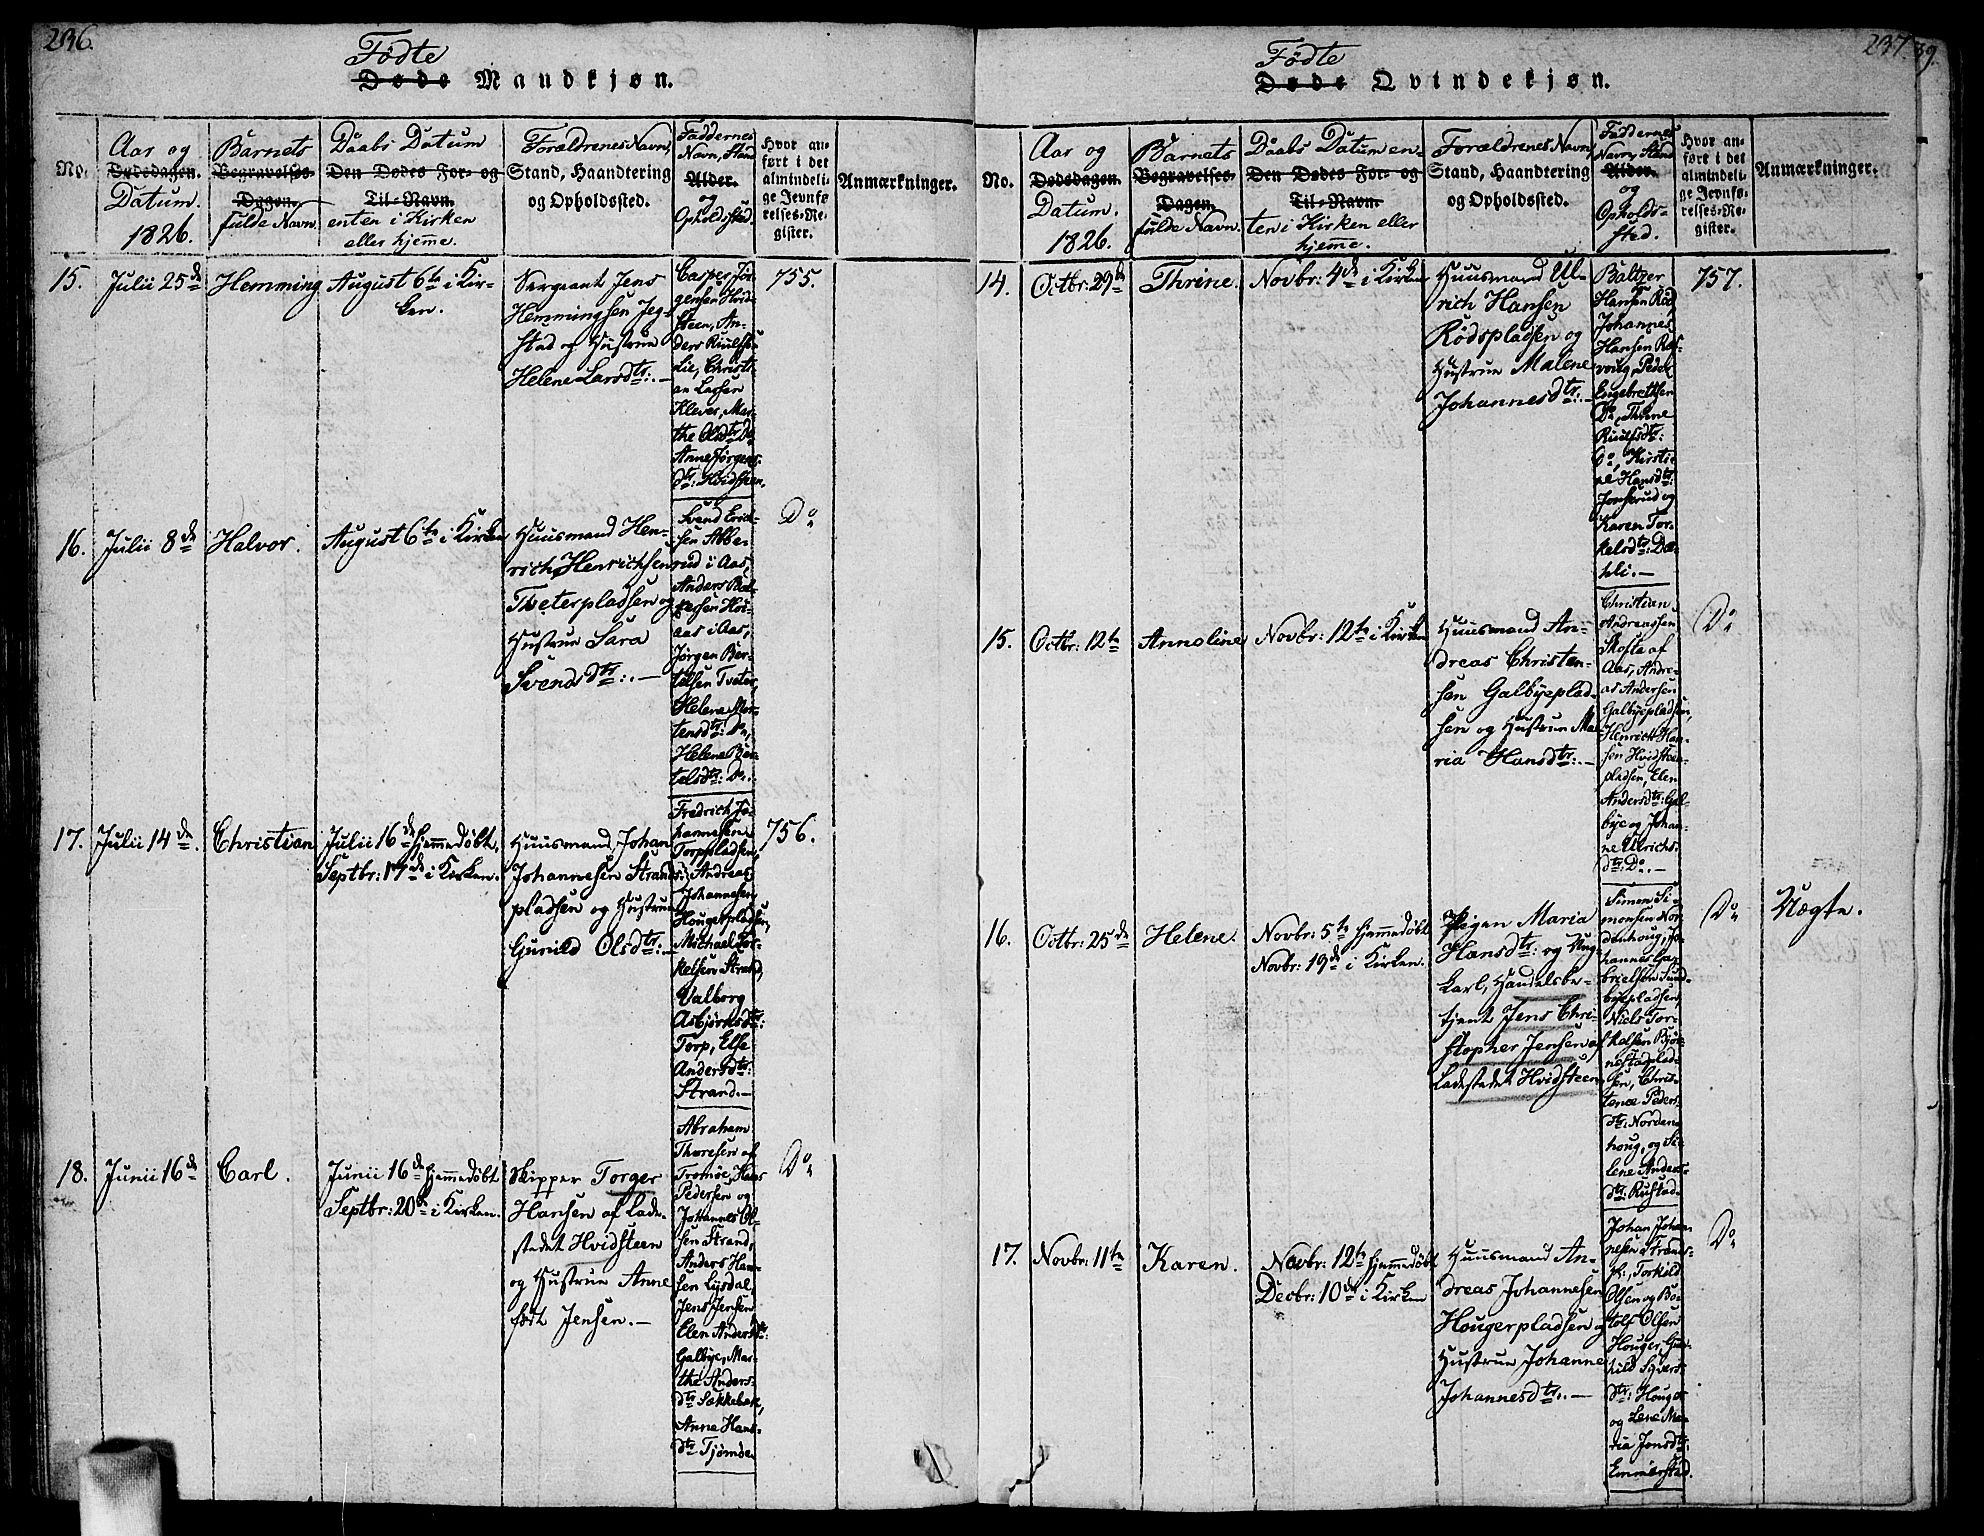 236.
Fødte
Døde Mandkjøn.
No.
Aar og
Dødsdagen.
Datum.
1826.
Barnets
Begravelses-
Dagen.
fulde Navn.
Daabs Datum
Den Dødes For- og
Til-Navn.
enten i Kirken
eller hjemme.
Forældrenes Navn,
Stand, Haandtering
og Opholdssted.
Faddernes
Navn, Stand
Alder.
og
Opholdssted.
Hvor an-
ført i det
almindeli-
ge Jevnfø-
relses-Re-
gister.
Anmærkninger.
15.
Julii 25de
Hemming
August 6te i Kir-
ken.
Sergeant Jens
Hemmingsen Jeg-
stad og Hustrue
Helene Larsdtr:.-
Casper Jør-
gensen Hvid-
steen, An-
ders Ruulfsø-
Lie, Christi-
an Larsen
Klever, Mar-
the Olsdtr: Do
Anne Jørgens-
dtr: Hvidsteen.
755.
16.
Julii 8de
Halvor.
August 6te i Kirken
Huusmand Hen-
rich Henrichsen
Tveterpladsen og
Hustrue Sara
Svendsdtr:.-
Svend Erich-
sen Abbe-
rud i Aas,
Anders
aas i Aas,
Jørgen Ber-
telsen Tveter,
Helene Mor-
tensdtr: Do,
Helene Ber-
telsdtr: Do.
Do
17.
Julii 14de.
Christian
Julii 16de hjemmedøbt,
Septbr: 17de i Kirken.
Huusmand Johan
Johannesen Strand-
pladsen og Hustrue
Gunild Olsdtr:.-
Fredrich Jo-
hannesen
Torppladsen,
Andreas
Johannesen
Hougerpladsen,
Michael Tor-
kelsen Strand,
Valborg
Asbjørnsdtr:
Torp, Else
Andersdtr:
Strand.-
756.
18.
Junii 16de
Carl.
Junii 16de hjemmedøbt
Septbr: 20de i Kirken.
Skipper Torger
Hansen af Lade-
stedet Hvidsteen
og Hustrue Anne
født Jensen.-
Abraham
Thoresen af
Tromøe, Hans
Pedersen og
Johannes Ol-
sen Strand,
Anders Han-
sen Lysdal,
Jens Jensen
Elen Andersdtr:
Galbye, Mar-
the Anders-
dtr Sækkebæk,
Anne Hans-
dtr Tjømde.
Do
237.
39.
Fødte
Døde Qvindekjøn.
No.
Aar og
Dødsdagen.
Datum.
1826.
Barnets
Begravelses-
Dagen.
fulde Navn.
Daabs Datum en-
Den Dødes For- og
Til-Navn.
ten i Kirken eller
hjemme.
Forældrenes Navn,
Stand, Haandtering
og Opholdssted.
Faddernes
Navn, Stand
Alder.
og
Opholds-
sted.
Hvor an-
ført i det
almindeli-
ge Jevnfø-
relses-Re-
gister.
Anmærkninger.
14.
Octbr: 29de
Thrine.
Novbr: 4de i Kirken
Huusmand Ul-
rich Hansen
Rødspladsen og
Hustrue Malene
Johannesdtr:.-
Baltzer
Hansen Rød,
Johannes
Hansen
Peder
Engebretsen
Do, Thrine
Ruulfsdtr:
Do, Kirsti-
ne Hansdtr:
Jonsrud og
Karen Tor-
kelsdtr: Dæ-
hli.-
757.
15.
Octbr: 12te
Annoline
Novbr: 12te i Kirken
Huusmand An-
dreas Christen-
sen Galbyeplad-
sen og Hustrue Ma-
ria Hansdtr:.-
Christian
Andreassen
Skofte af
Aas, Andre-
as Andersen
Galbyepladsen,
Henrich Han-
sen Hvidsteen-
pladsen, Elen
Andersdtr: Gal-
bye og Johan-
ne Ulrichs-
dtr: Do.-
Do
16.
Octbr: 25de
Helene.
Novbr: 5te hjemmedøbt
Novbr: 19de i Kirken.
Pigen Maria
Hansdtr: og Ung-
karl, Handelsbe-
tjent Jens Chri-
stopher Jensen af
Ladestedet Hvidsteen
Simon Si-
monsen Nor-
denhoug, Jo-
hannes Ga-
brielsen Sund-
byepladsen,
Niels Tor-
kelsen Bjør-
nestadplad-
sen, Chris-
tence Peders-
dtr: Norden-
houg, og Si-
lene Anders-
dtr: Rustad.
Do
Uægte.
17.
Novbr: 11te
Karen.
Novbr: 12te hjemmedøbt
Decbr: 10de i Kirken
Huusmand An-
dreas Johannesen
Hougerpladsen og
Hustrue Johanne
Johannesdtr:.-
Johan Johan-
nesen Strands-
pl:, Torkild
Olsen og Bo-
tolf Olsen
Houger, Gun-
hild Sivers-
dtr: Houger
og Lene Ma-
ria Jonsdtr:
Emmerstad.
Do